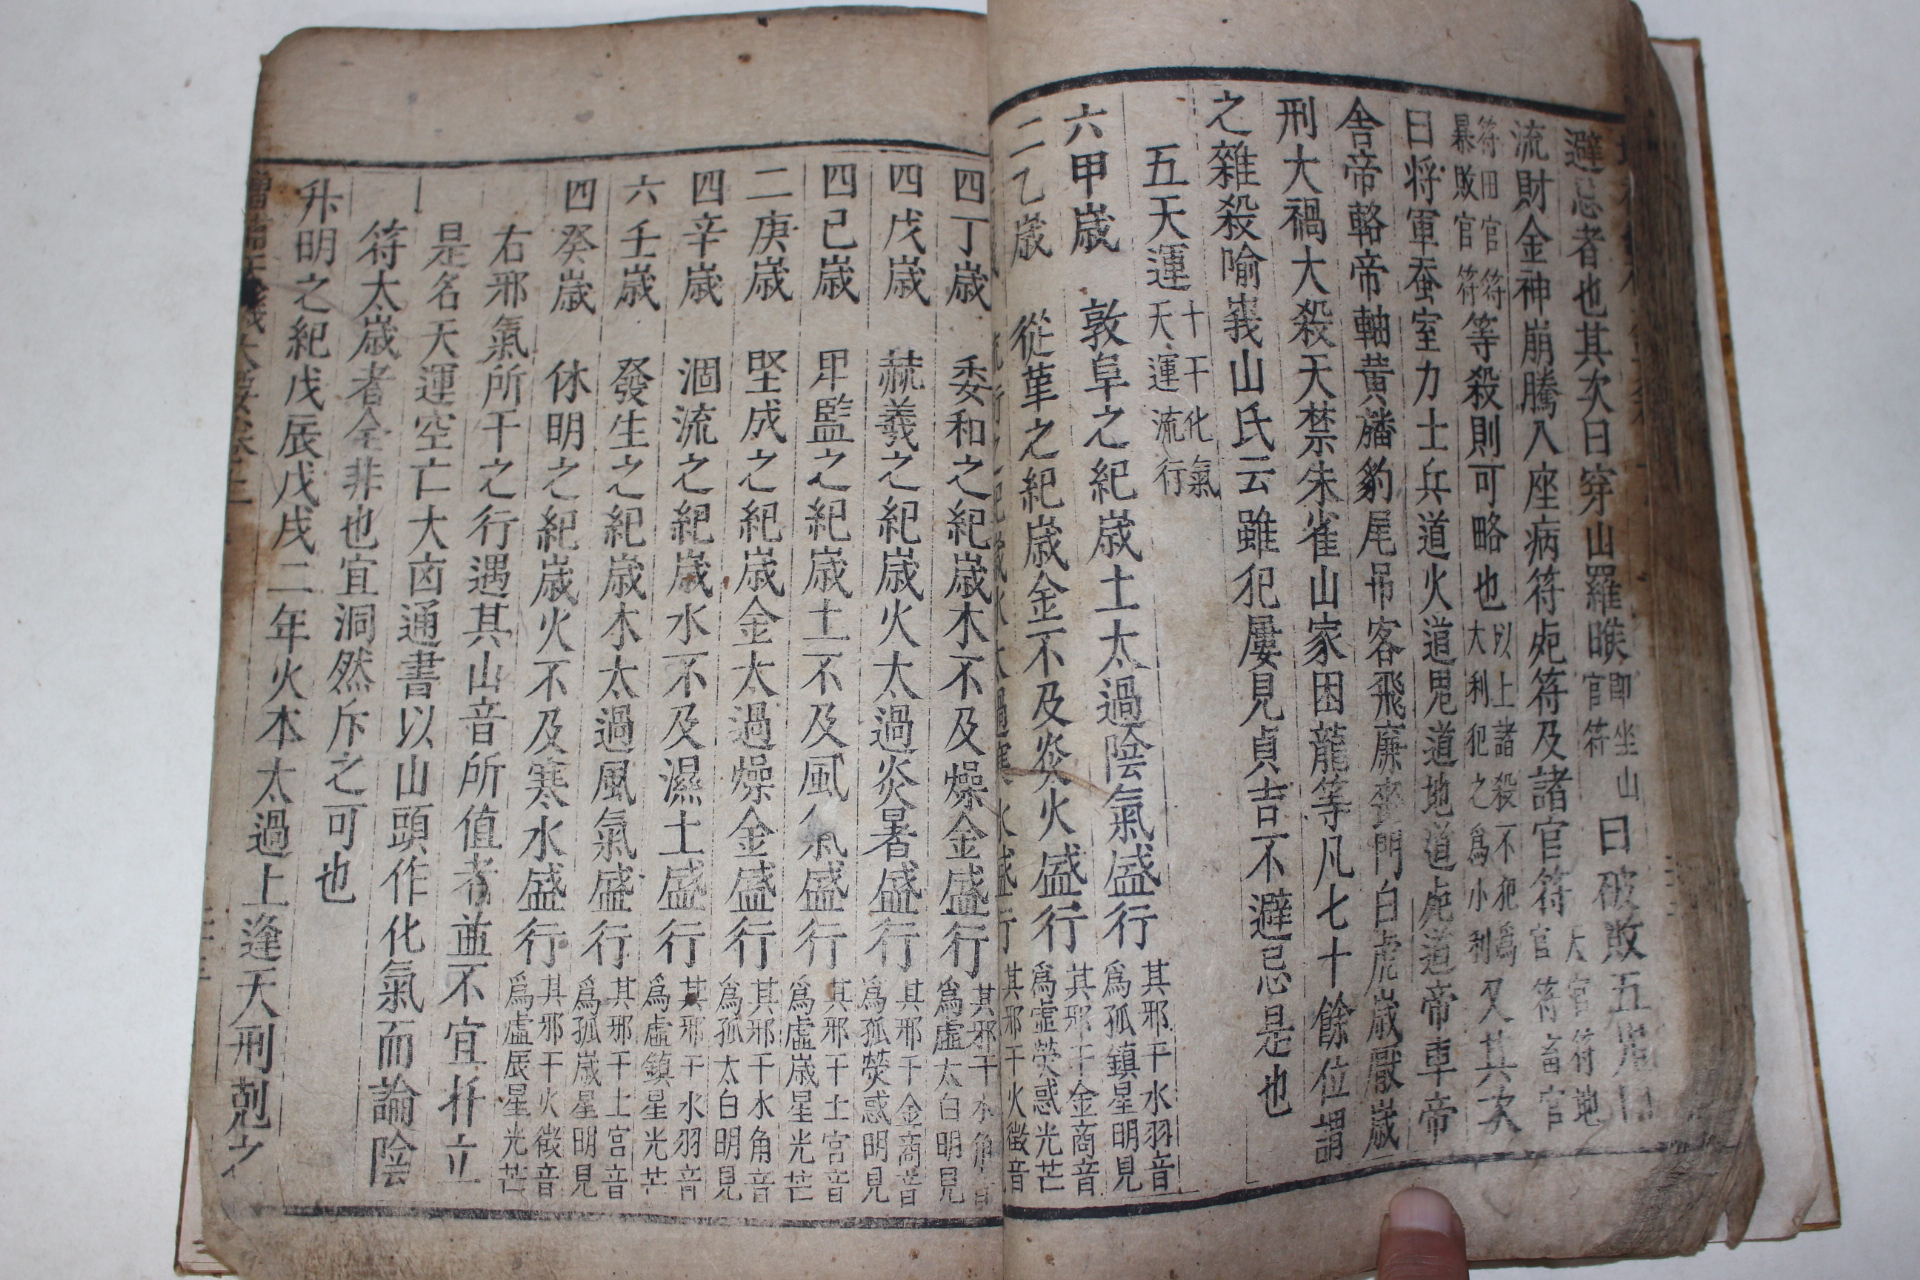 避忌者也其次曰穿山羅睺即坐山官符曰破敗五鬼曰
流財金神崩騰入座病符死符及諸官符大官符地官符畜官
符田官符暴敗官符等殺則可略也以上諸殺不犯爲大利犯之爲小利又其次
曰将軍蚕室力士兵道火道鬼道地道虎道帝車帝
舍帝輅帝軸黄旛豹尾吊客飛廉喪門白虎歳厭歳
刑大禍大殺天禁朱雀山家困龍等凡七十餘位謂
之雜殺喻峩山氏云雖犯屢見貞吉不避忌是也
五天運十干化氣天運流行
六甲歳 敦阜之紀歳土太過陰氣盛行其邪干水羽音爲孤鎮星明見
二乙歳 從革之紀歳金不及炎火盛行其邪干金商音爲虛熒惑光芒
流衍之紀歳水太過寒水盛行其邪干火徵音
四丁歳 委和之紀歳木不及燥金盛行其邪干木角音爲虛太白明見
四戊歳 赫羲之紀歳火太過炎暑盛行其邪干金商音爲孤熒惑明見
四己歳 卑監之紀歳土不及風氣盛行其邪干土宮音爲虛歳星光芒
二庚歳 堅成之紀歳金太過燥金盛行其邪干木角音爲孤太白明見
四辛歳 涸流之紀歳水不及濕土盛行其邪干水羽音爲虛鎮星光芒
六壬歳 發生之紀歳木太過風氣盛行其邪干土宮音爲孤歳星明見
四癸歳 休明之紀歳火不及寒水盛行其邪干火徵音爲虛辰星光芒
右邪氣所干之行遇其山音所值者並不宜扦立
是名天運空亡大凶通書以山頭作化氣而論陰
符太歳者全非也宜洞然斥之可也
升明之紀戊辰戊戌二年火本太過上逢天刑剋之